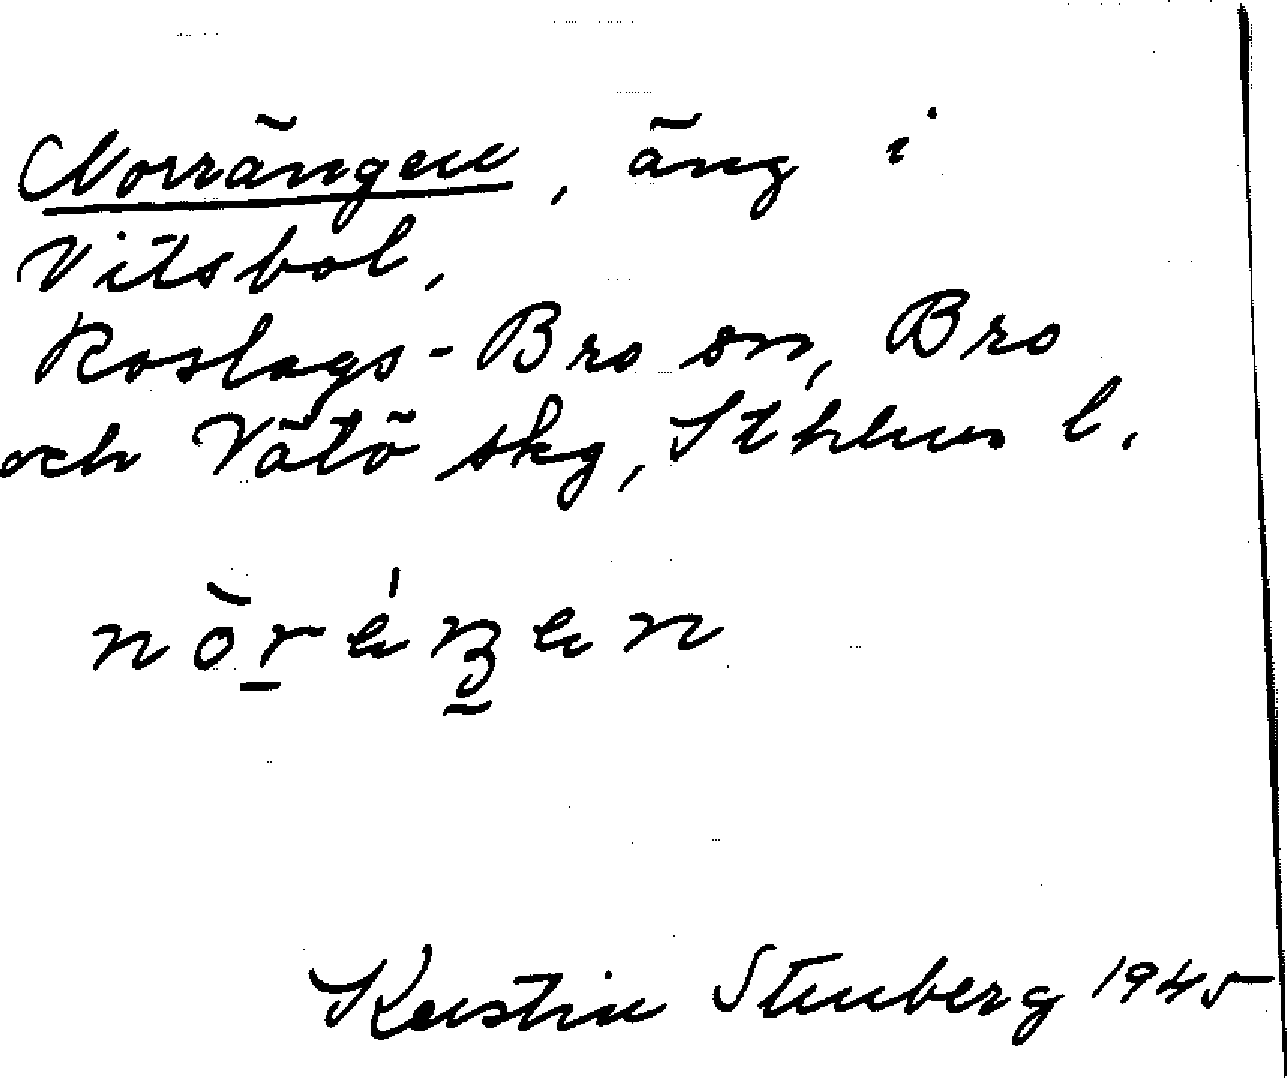 Norrängen, äng i
Vitsbol,
Roslags-Bro sn, Bro
och Vätö skg, Sthlms l.
Kerstin Stenberg 1945